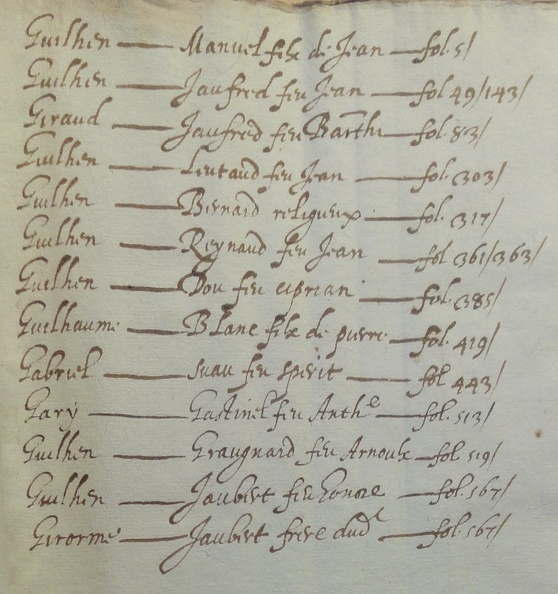 Guilhen — Manuel filx de Jean — fol. 5/
Guilhen — Jaufred feu Jean — fol 49/143/
Giraud — Jaufred feu Barthe — fol. 83/
Guilhen — Lieutaud feu Jean — fol. 303/
Guilhen — Bernard religieux — fol. 317/
Guilhen — Reynaud feu Jean — fol 361/363/
Guilhen — Dou feu ciprian — fol. 385/
Guilhaume — Blanc filx de pierre — fol. 419/
Gabriel — suau feu spirit — fol 443/
Gary — Gastinel feu Anthe — fol. 513/
Guilhen — Graugnard feu Arnoulx — fol 519/
Guilhen — Jaubert feu honore — fol. 567/
Girorme — Jaubert frere dud — fol. 567/